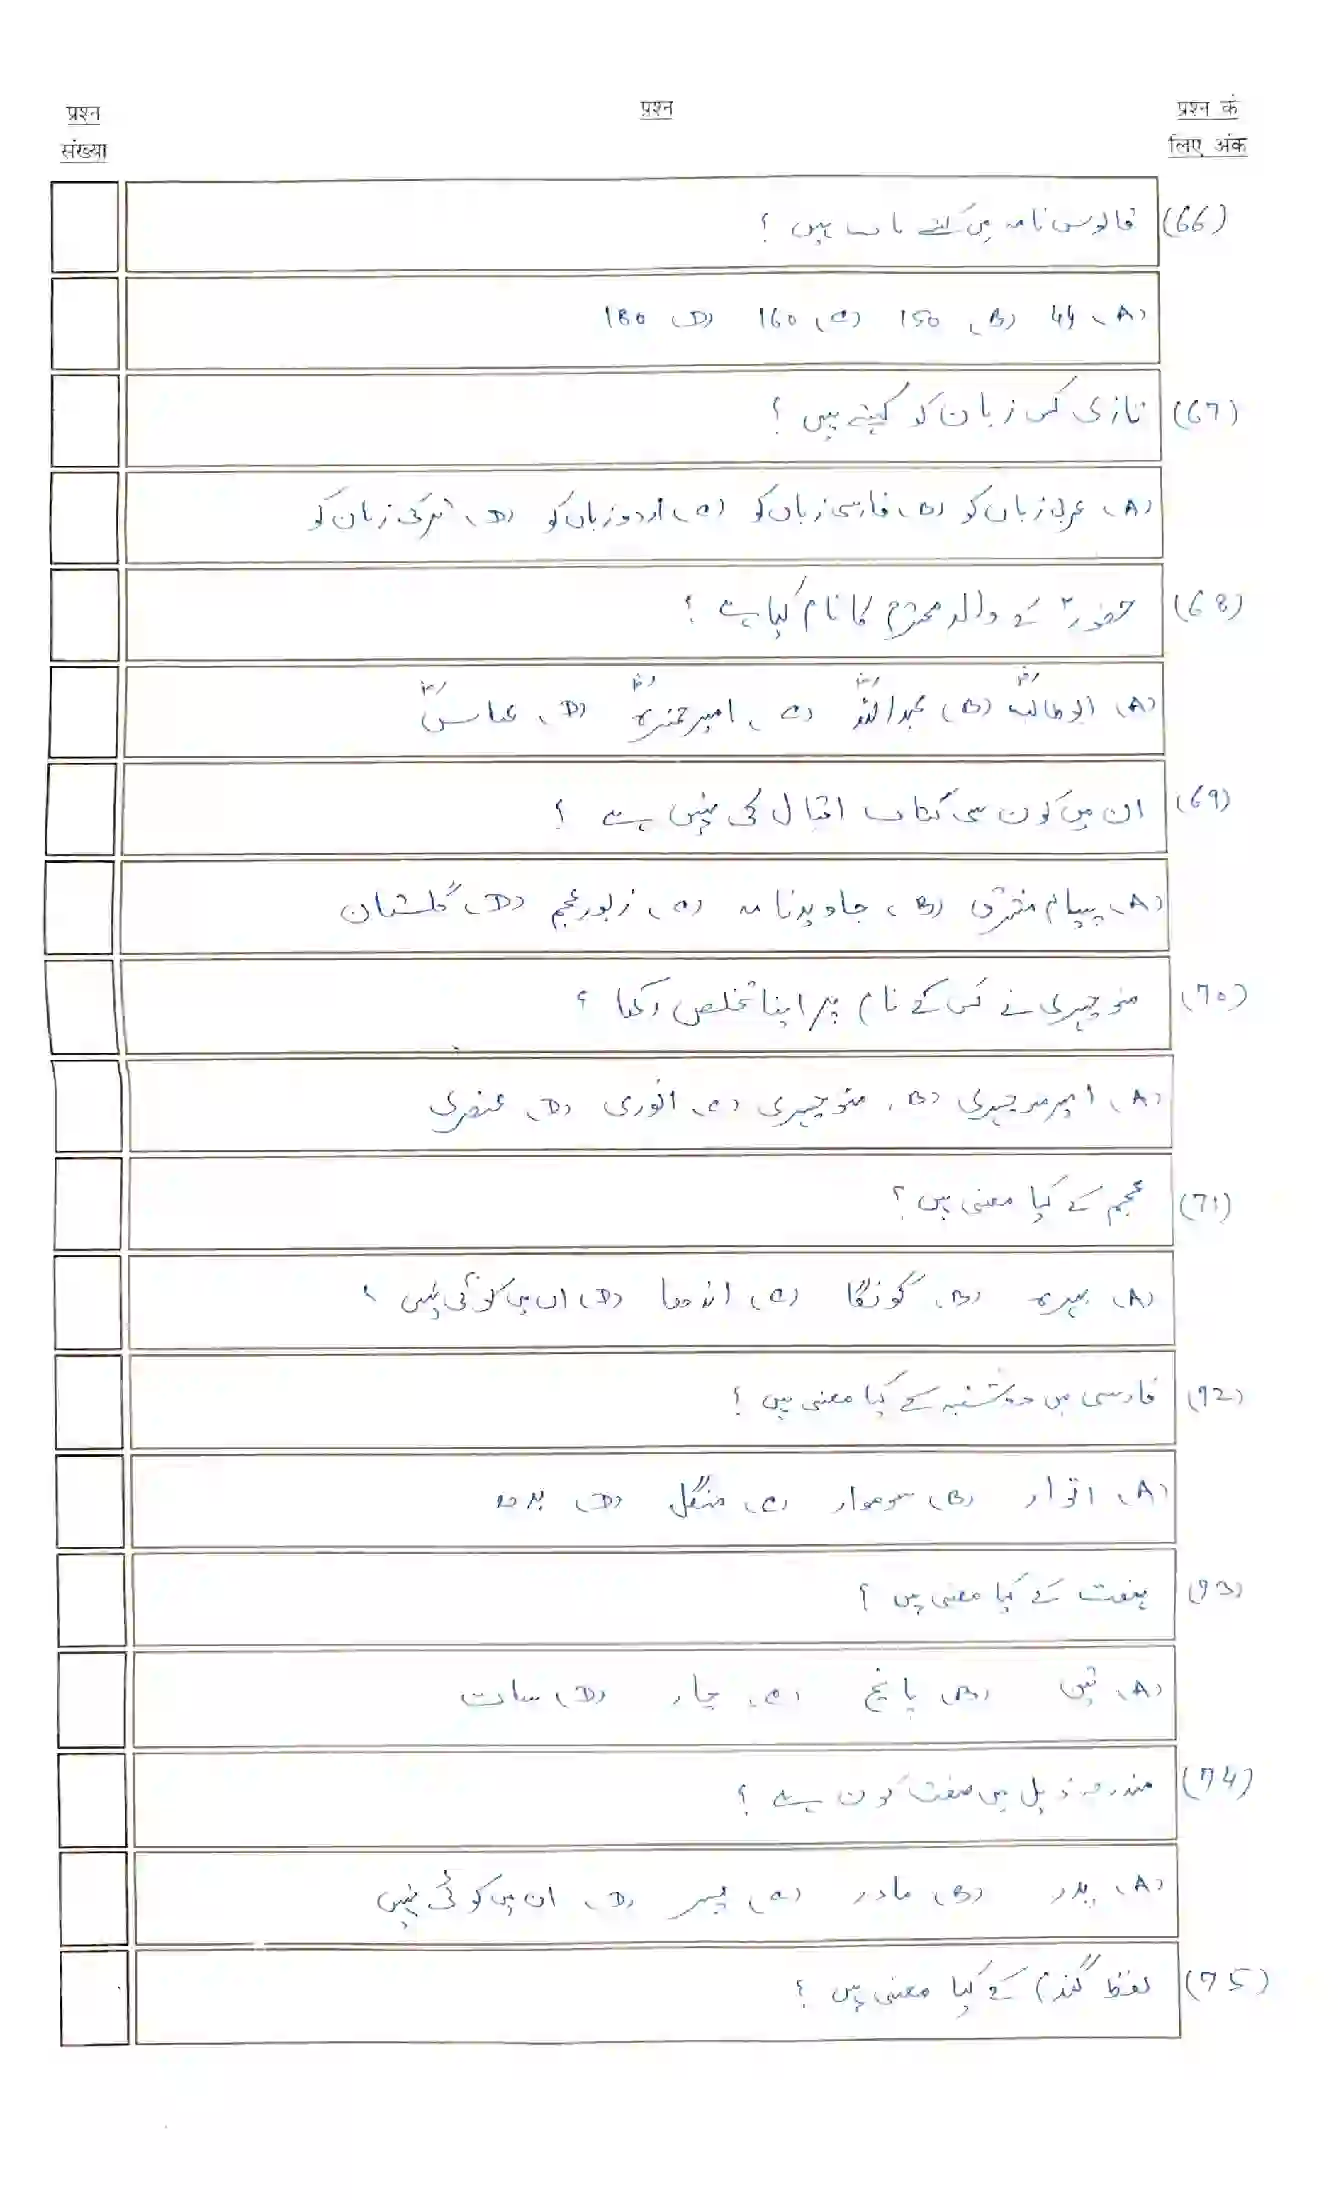 प्रश्न संख्या
प्रश्न
प्रश्न के लिए अंक
(66) قابوس نامہ میں کتنے باب ہیں ؟
(A) 44 (B) 150 (C) 160 (D) 180
(67) تازی کس زبان کو کہتے ہیں ؟
(A) عربی زبان کو (B) فارسی زبان کو (C) اردو زبان کو (D) ترکی زبان کو
(68) حضورؐ کے والد محترم کا نام کیا ہے ؟
(A) ابو طالبؓ (B) عبداللہؓ (C) امیر حمزہؓ (D) عباسؓ
(69) ان میں کون سی کتاب اقبال کی نہیں ہے ؟
(A) پیام مشرق (B) جاوید نامہ (C) زبور عجم (D) گلستان
(70) منوچہری نے کس کے نام پر اپنا تخلص رکھا ؟
(A) امیر منوچہری (B) منوچہری (C) انوری (D) عنصری
(71) عجم کے کیا معنی ہیں ؟
(A) بہرہ (B) گونگا (C) اندھا (D) ان میں کوئی نہیں
(72) فارسی میں دوشنبہ کے کیا معنی ہیں ؟
(A) اتوار (B) سوموار (C) منگل (D) بدھ
(73) ہفت کے کیا معنی ہیں ؟
(A) تین (B) پانچ (C) چار (D) سات
(74) مندرجہ ذیل میں صفت کون ہے ؟
(A) پدر (B) مادر (C) پسر (D) ان میں کوئی نہیں
(75) لفظ گندم کے کیا معنی ہیں ؟